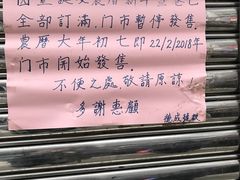 全部訂滿,門市暫停發售.
農曆大年初七即22/2/2018年
门市開始發售.
不便之處,敬請原諒!
多謝惠顧